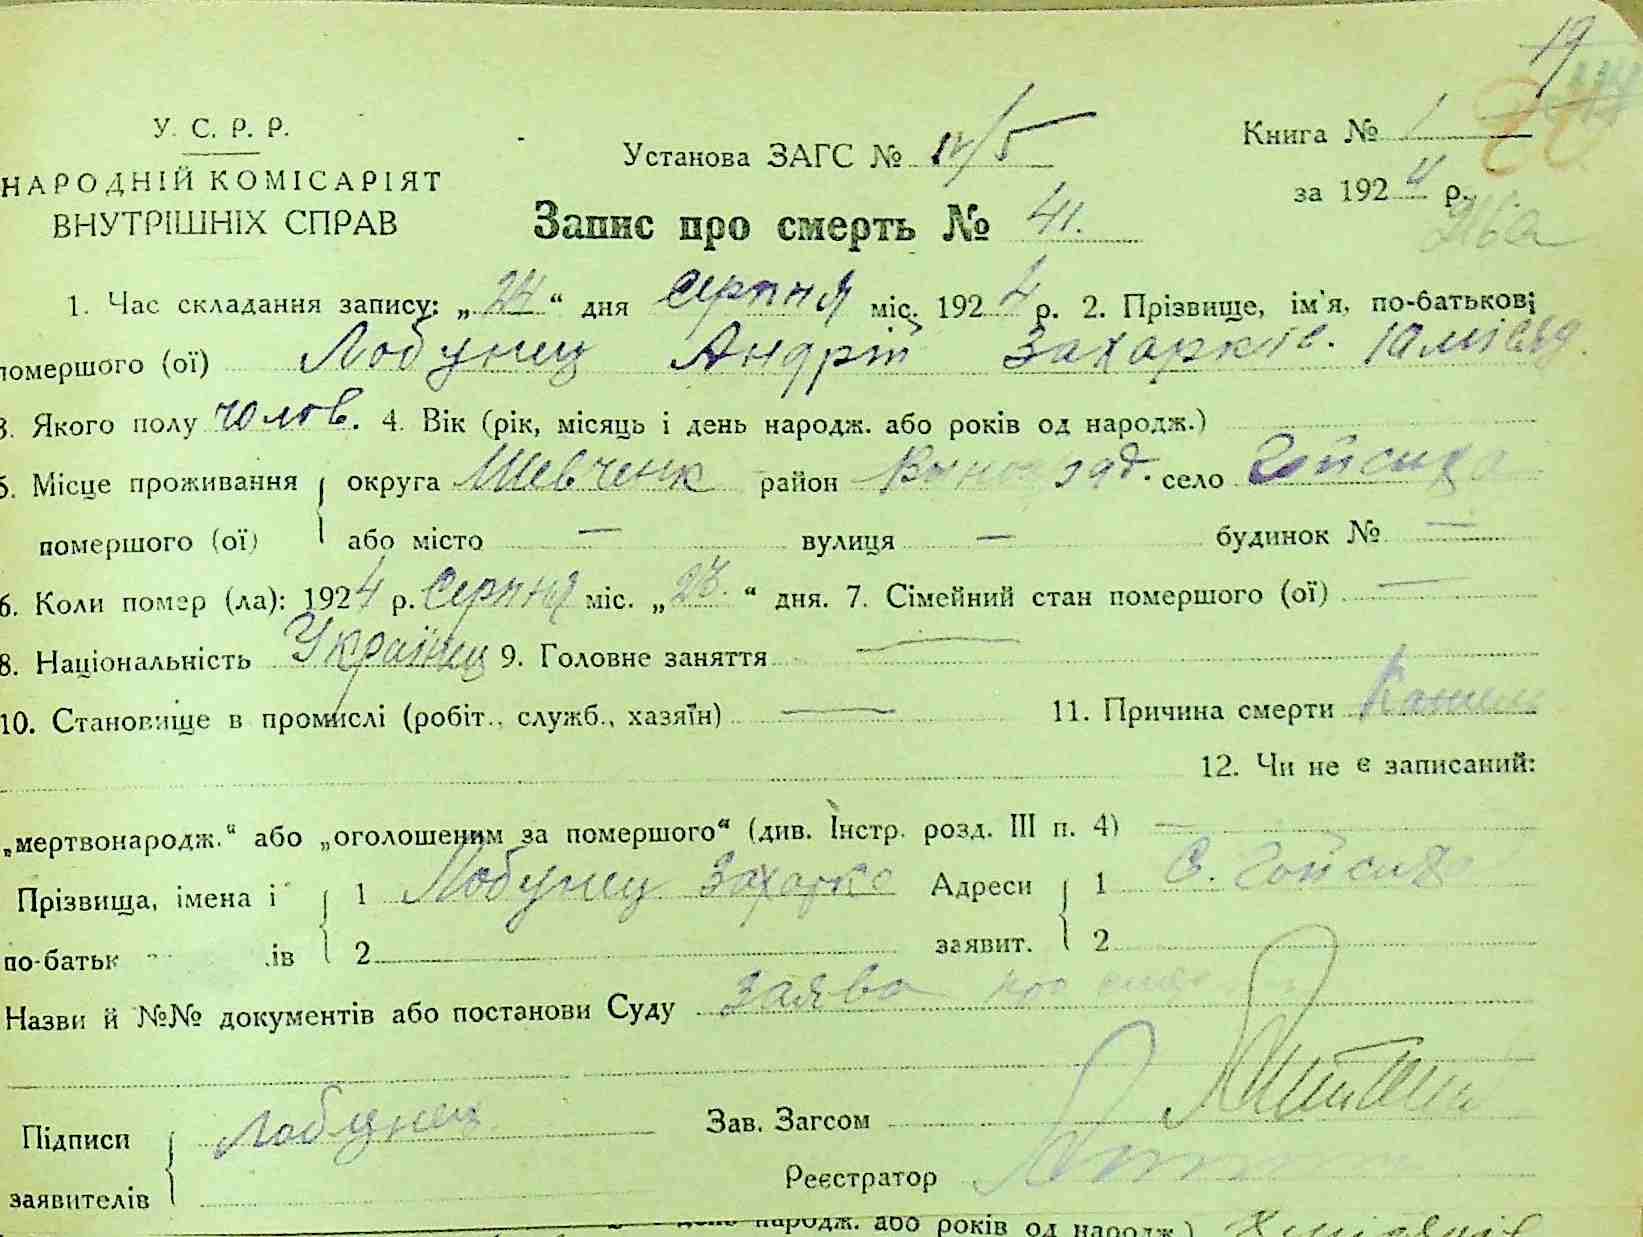 19
У. С. Р. Р.
НАРОДНІЙ КОМІСАРІЯТ
ВНУТРІШНІХ СПРАВ
Установа ЗАГС № 12/5
Книга № 1
за 1924 р.
Запис про смерть № 41.
1. Час складання запису: „24“ дня Серпня міс. 1924 р. 2. Прізвище, ім'я, по-батькові
помершого (ої) Лобунец Андрій Захарків. 10 місяц.
3. Якого полу чолов. 4. Вік (рік, місяць і день народж. або років од народж.)
5. Місце проживання округа Шевченк район село
помершого (ої) або місто — вулиця — будинок № —
6. Коли помер (ла): 1924 р. Серпня міс. „23.“ дня. 7. Сімейний стан помершого (ої) —
8. Національність Українец 9. Головне заняття —
10. Становище в промислі (робіт., служб., хазяїн) — 11. Причина смерти
12. Чи не є записаний:
„мертвонародж.“ або „оголошеним за помершого“ (див. Інстр. розд. III п. 4) —
Прізвища, імена і 1 Лобунец Захарко Адреси 1 С.
по-батьк ів 2 заявит. 2
Назви й №№ документів або постанови Суду Заява про
Підписи Лобунец Зав. Загсом
заявителів Реєстратор
день народж. або років од народж.)